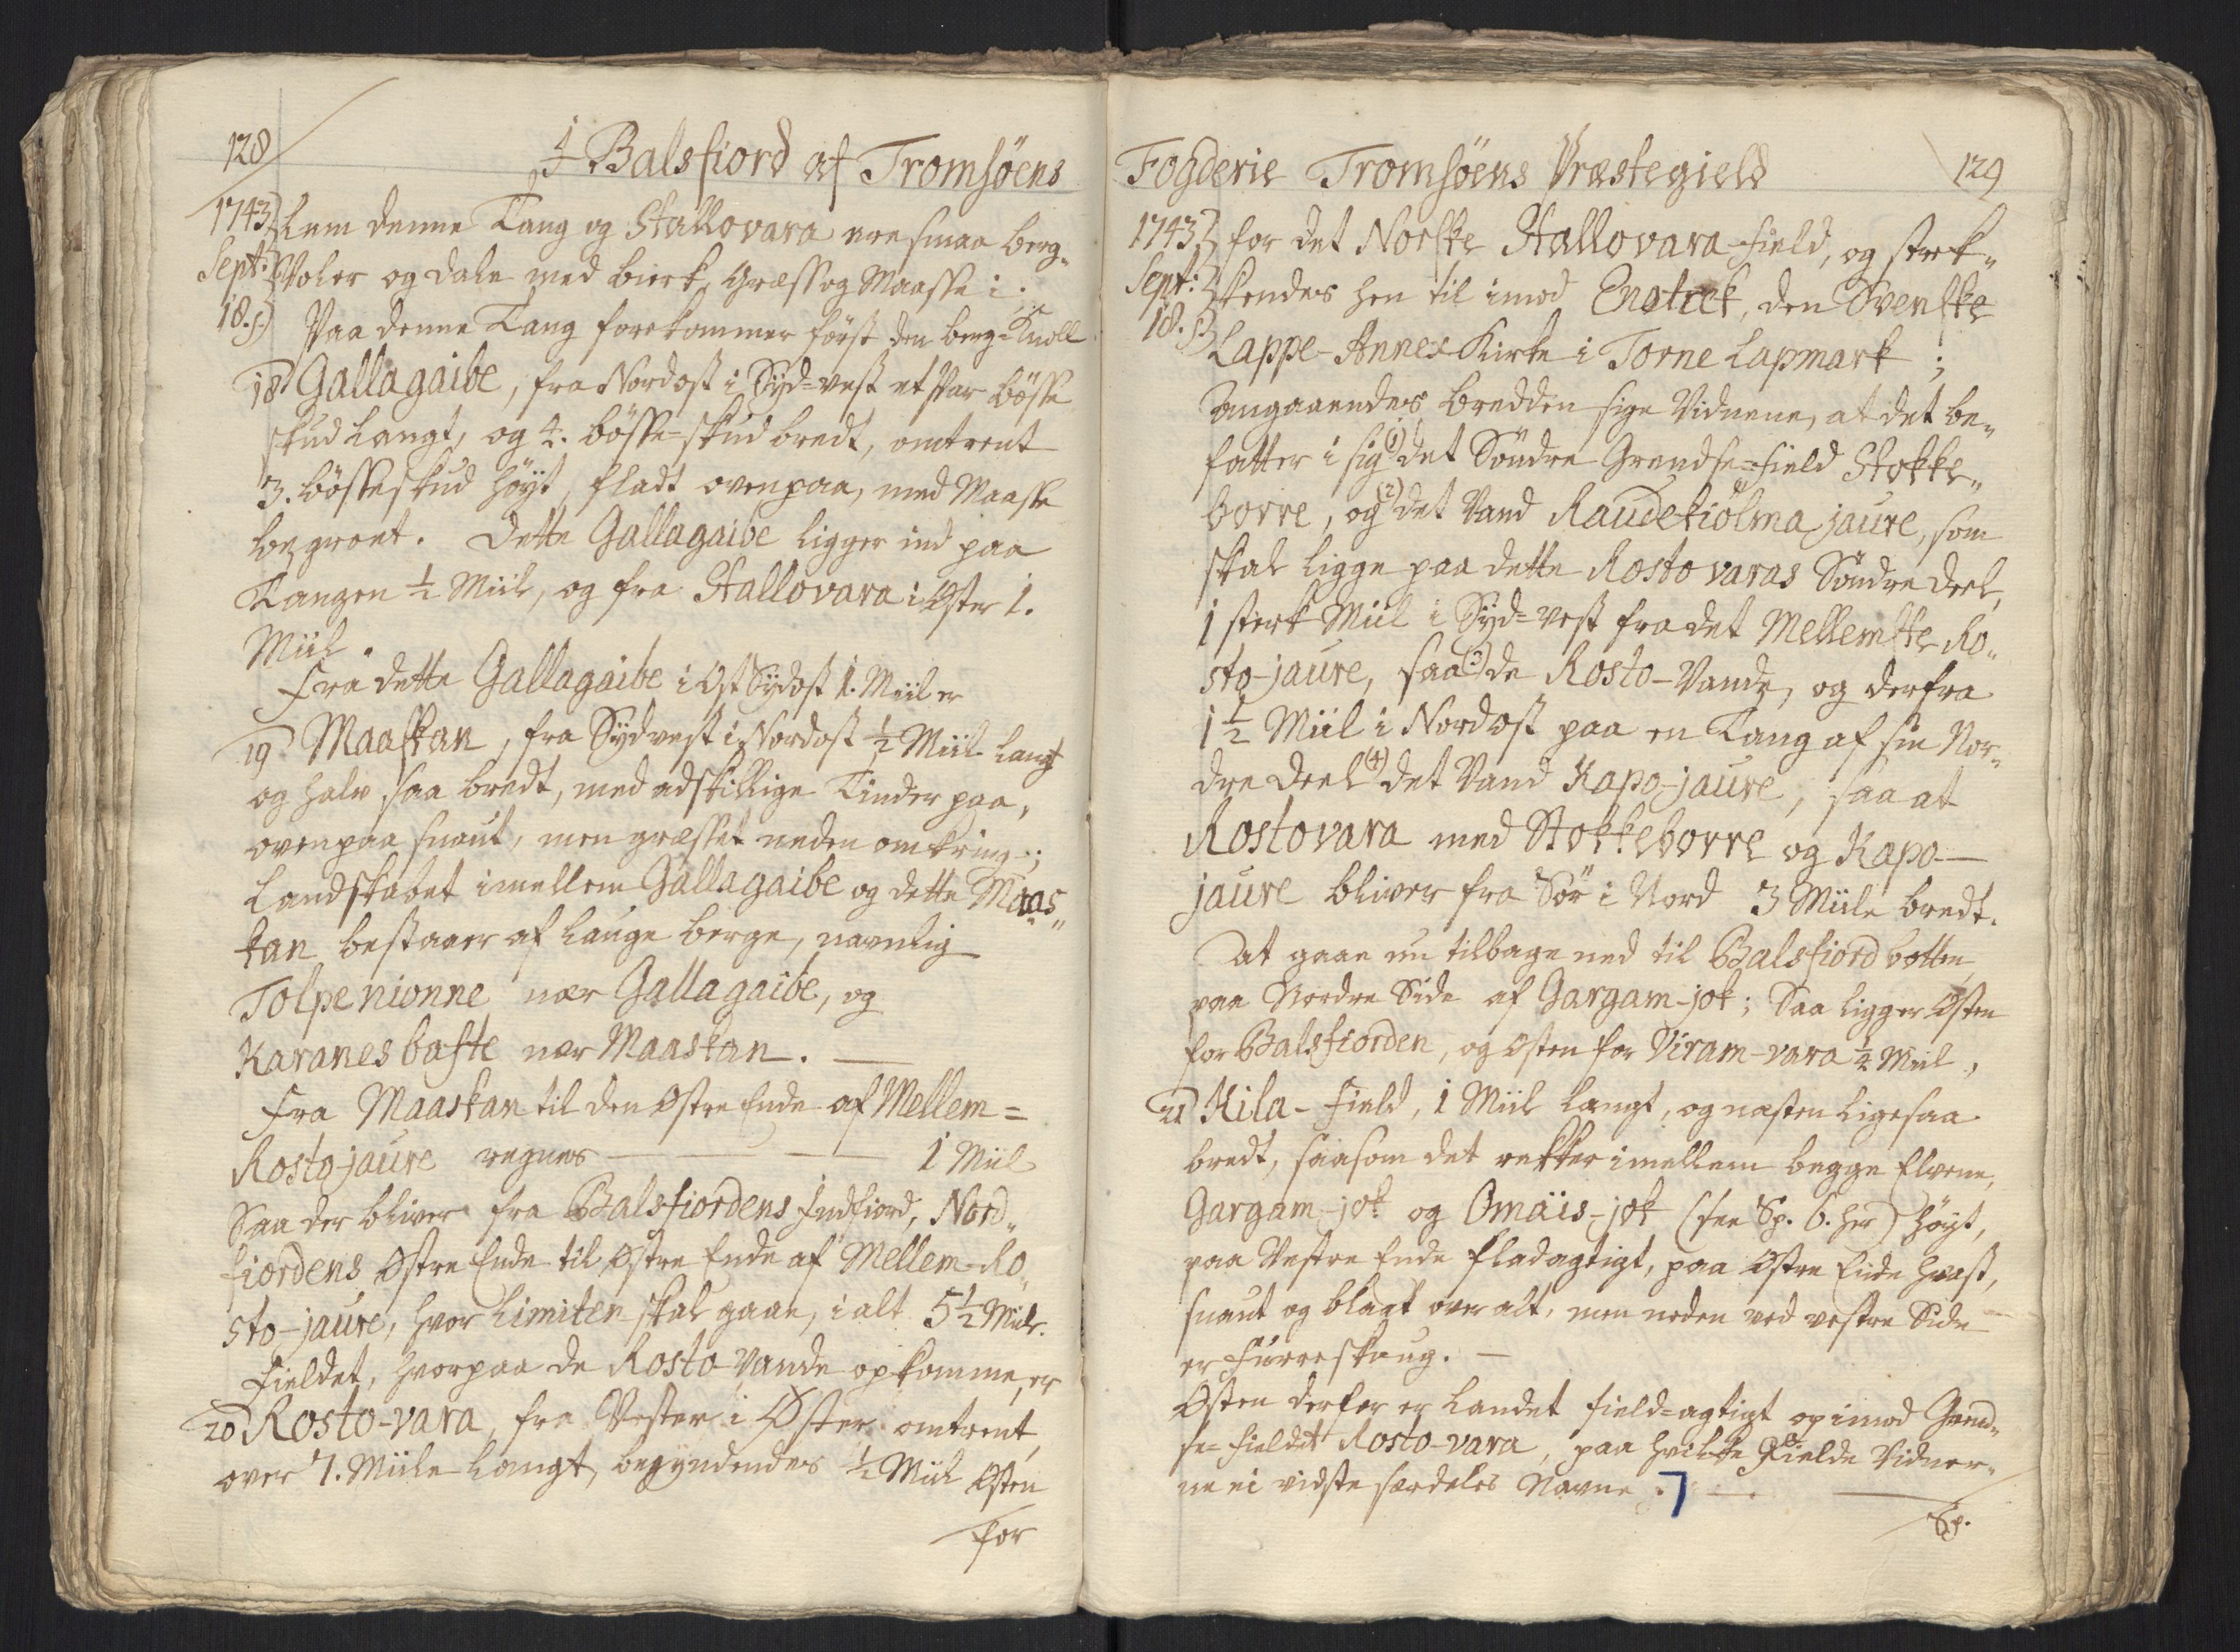 128
i Balsfiord af Tromsöens
1743 lem denne Tang og Stallovara ere smaa berg-
Sept: Voler og dale med bierk, Græss og Maasse i.
18. s. Paa denne Tang forekommer först den berg-Knoll
18 Gallagaibe, fra Nordost i Syd-vest et Par bösse
skud langt, og 4. bösse-skud bredt, omtrent
3. bösseskud höyt, fladt ovenpaa, med Maasse
begroet. Dette Gallagaibe ligger ind paa
Tangen ½ Miil, og fra Stallovara i Öster 1.
Miil.
Fra dette Gallagaibe i Ost Sydost 1. Miil er
19 Maaskan, fra Sydvest i Nordost ½ Miil langt
og halv saa bredt, med adskillige Tinder paa,
ovenpaa snaut, men græsset neden omkring;
Landskabet imellem Gallagaibe og dette Maas-
kan bestaaer af lauge berge, navnlig
Tolpenionne nær Gallagaibe, og
Karanesbaste nær Maaskan. —
Fra Maaskan til den Östre Ende af Mellem-
Rostojaure regnes — — 1 Miil
Saa der bliver fra Balsfiordens Indfiord, Nord-
fiordens Östre Ende til Östre Ende af Mellem-Ro-
sto-jaure, hvor Limiten skal gaae, i alt 5½ Miile.
Fieldet, hvorpaa de Rosto-Vande opkomme, er
20 Rosto-vara, fra Vester i Öster omtrent
over 7. Miile langt, begyndendes ½ Miil Osten
for
Fogderie Tromsöens Præstegield
129
1743 for det Norske Stallovara-field, og strek-
Sept: kendes hen til imod Enotek, den Svenske
18. s. Lappe-Annex-Kirke i Torne Lapmark;
Angaaendes bredden sige Vidnene, at det be-
fatter i sig (1) det Söndre Grendse-field Stokke-
borre, og (2) det Vand Raudekiolma jaure, som
skal ligge paa dette Rosto varas Söndre deel,
1 sterk Miil i Syd-vest fra det Mellemste Ro-
sto-jaure, saa (3) de Rosto-Vande, og derfra
1½ Miil i Nordost paa en Tang af sin Nor-
dre deel (4) det Vand Kapo-jaure, saa at
Rostovara med Stokkeborre og Kapo-
jaure bliver fra Sör i Nord 3 Miile bredt.
At gaae nu tilbage ned til Balsfiord botten
paa Nordre Side af Gargam-jok; Saa ligger Osten
for Balsfiorden, og Osten for Viram-vara ½ Miil,
21 Kila-field, 1 Miil langt, og næsten ligesaa
bredt, saasom det rekker imellem begge Elvene,
Gargam-jok og Omäis-jok (see Sp. 6. her) höyt,
paa Vestre Ende fladagtigt, paa Östre Ende hvast,
snaut og blagt over alt, men neden ved vestre Side
er Furreskaug. —
Osten derfor er Landet field-agtigt op imod Grend-
se-fieldet Rosto-vara, paa hvilke Fielde Vidner-
ne ei vidste særdeles Navne. —
Sp.